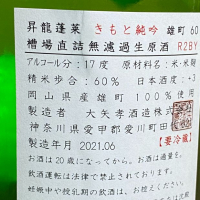 昇龍蓬莱 きもと純吟 雄町 60
槽場直詰無濾過生原酒 R2BY
アルコール分：17度 原材料名：米・米麹
精米歩合：60% 日本酒度：+3
岡山県産雄町 100% 使用
製造者 大矢孝酒造株式会社
神奈川県愛甲郡愛川町田
製造年月 2021.06 【要冷蔵】
お酒は20歳になってから。お酒は適量を。
飲酒運転は法律で禁止されております。
妊娠中や授乳期の飲酒は、お控えください。